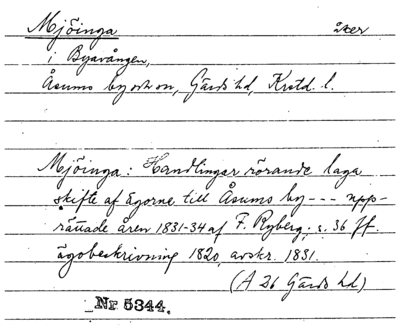 Mjöinga åker
i Byavången,
Åsums by och sn, Gärds hd, Krstd. l.
Mjöinga: Handlingar rörande laga
skifte af ägorne till Åsums by --- upp-
rättade åren 1831-34 af F. Ryberg; s. 36 ff.
ägobeskrivning 1820, avskr. 1831.
(A 26 Gärds hd)
Nr 5344.